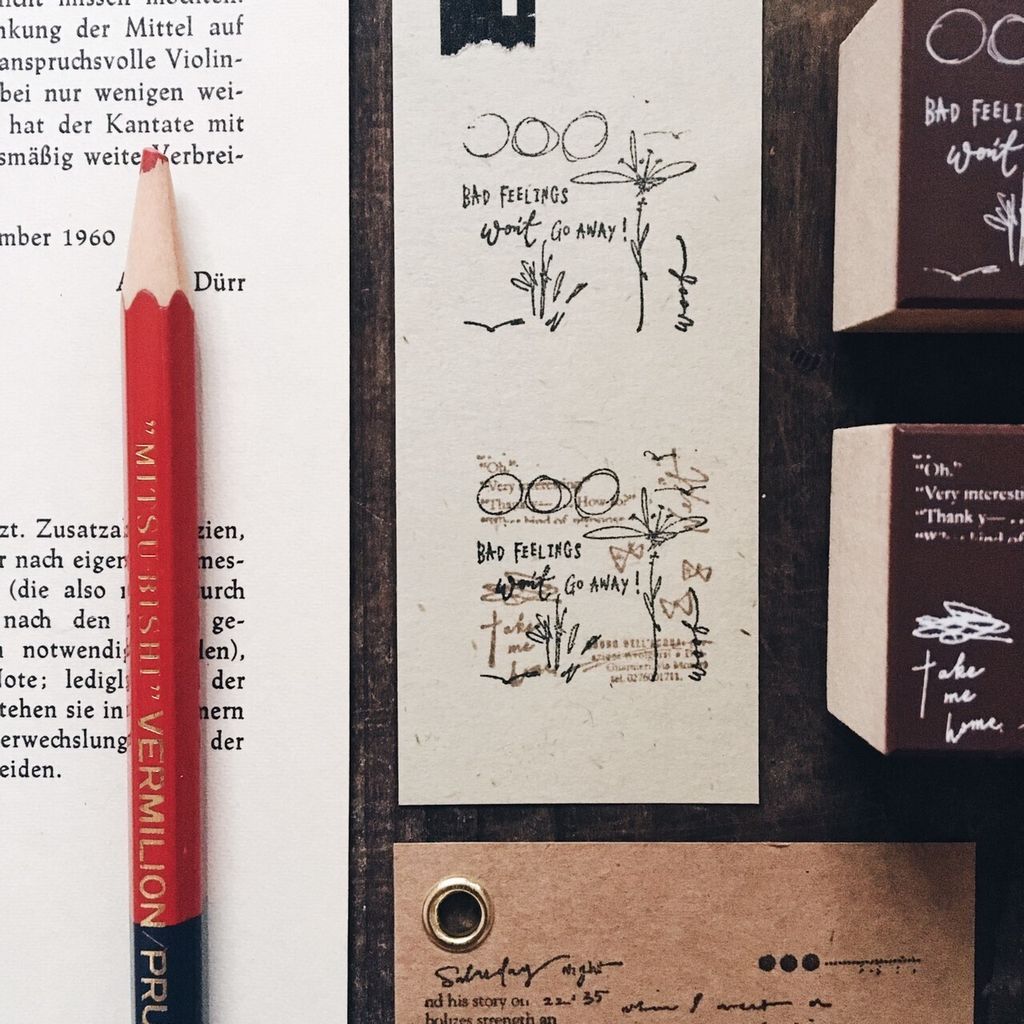 nicht missen möchten.
nkung der Mittel auf
anspruchsvolle Violin-
bei nur wenigen wei-
hat der Kantate mit
smäßig weite Verbrei-
mber 1960
A Dürr
zt. Zusatza zien,
r nach eigen mes-
(die also urch
nach den ge-
notwendi den),
Note; ledigl der
tehen sie in nern
erwechslung der
eiden.
"MITSU-BISHI" VERMILION/PRU
BAD FEELINGS
won't GO AWAY!
moof
"Oh."
"Very interesting
"Thank How to?"
kind of
BAD FEELINGS
won't GO AWAY!
take
me
tel. 0276001711.
BAD FEELI
won't
"Oh."
"Very interesti
"Thank y—
kind of
take
me
home.
Saturday night
nd his story on 22:35
when I went
bolizes strength an